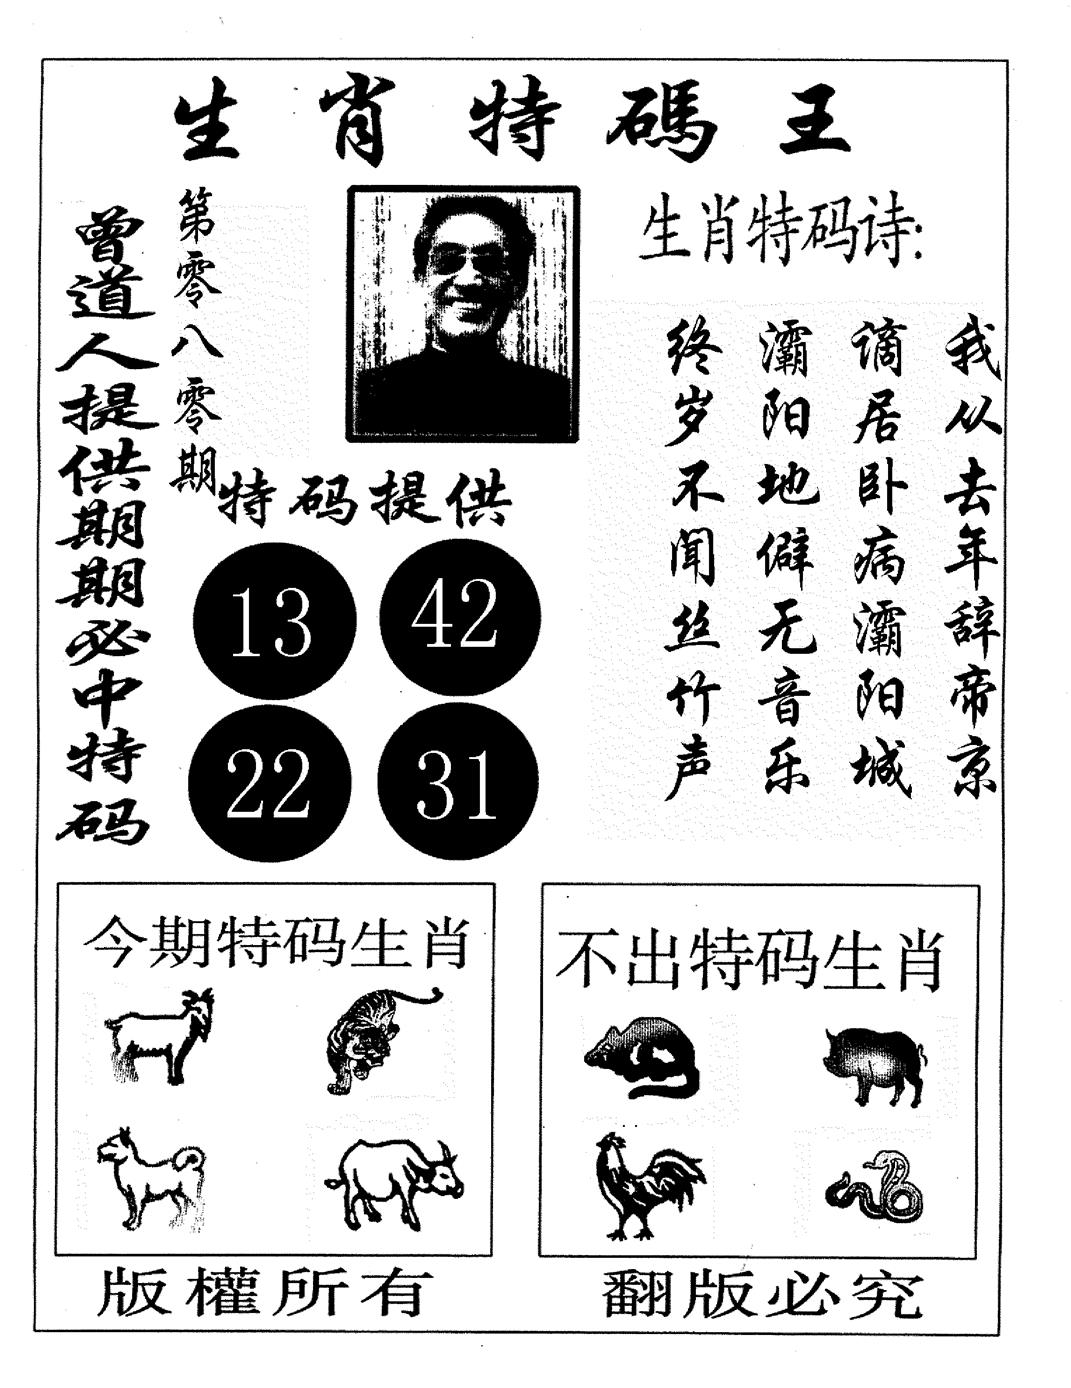 生肖特碼王
曾道人提供期期必中特码
第零八零期
生肖特码诗:
我从去年辞帝京
谪居卧病灞阳城
灞阳地僻无音乐
终岁不闻丝竹声
特码提供
13 42
22 31
今期特码生肖
不出特码生肖
版權所有
翻版必究